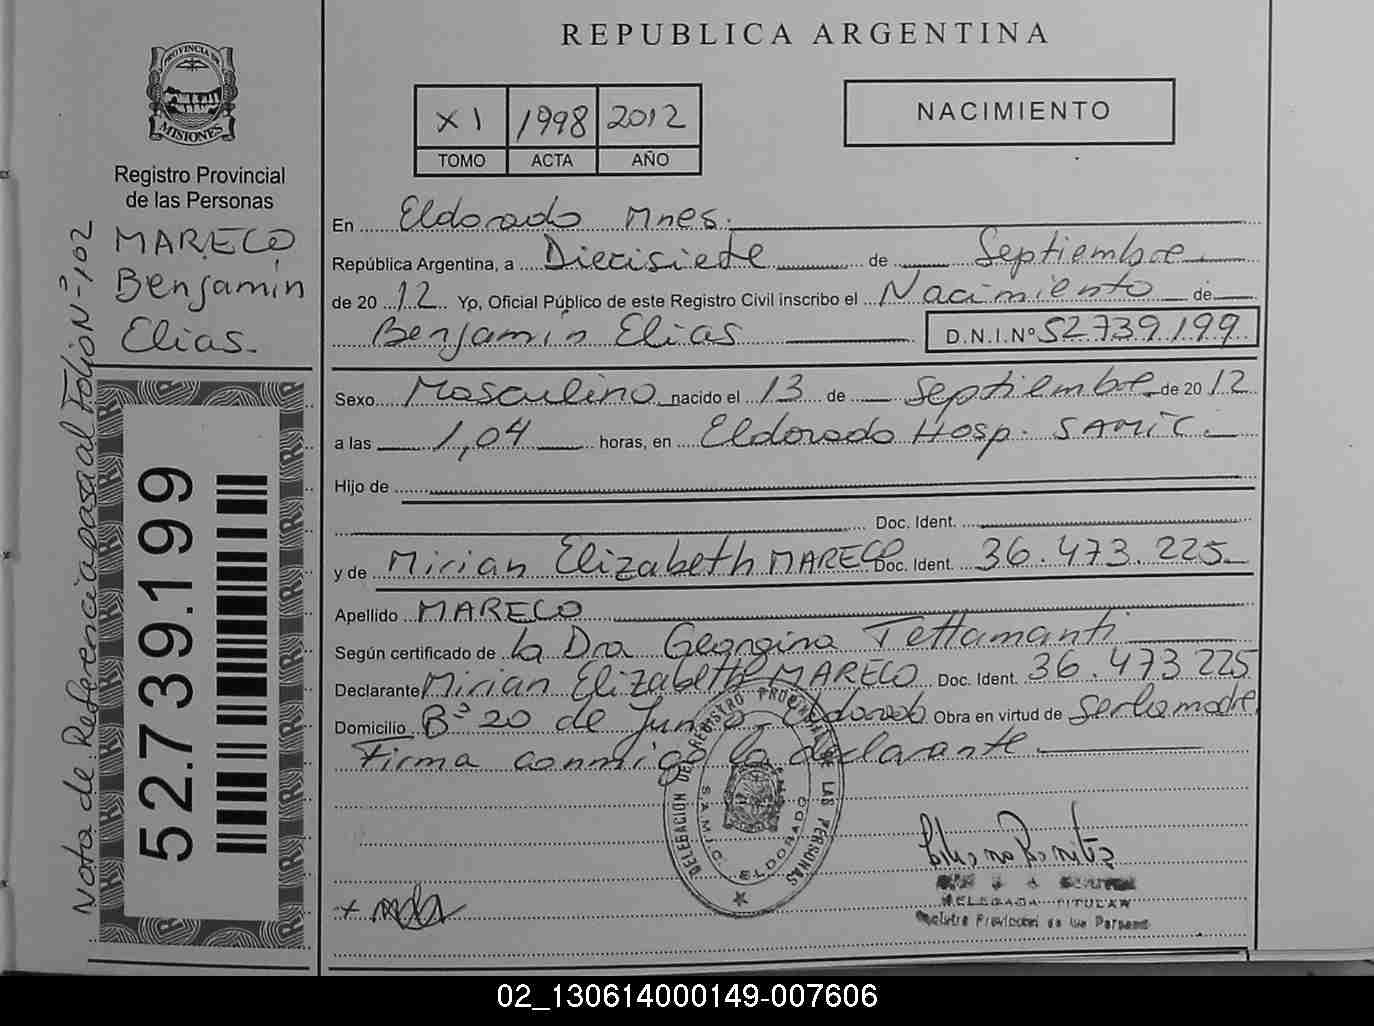 REPUBLICA ARGENTINA
PROVINCIA DE
MISIONES
Registro Provincial
de las Personas
MARECO
Benjamin
Elias.
Nota de Referencia pasa al Folio Nº 102
52.739.199
XI 1998 2012
TOMO ACTA AÑO
NACIMIENTO
En Eldorado Mnes.
República Argentina, a Diecisiete de Septiembre
de 2012 Yo, Oficial Público de este Registro Civil inscribo el Nacimiento de
Benjamin Elias D.N.I.Nº 52739.199
Sexo Masculino nacido el 13 de Septiembre de 2012
a las 1,04 horas, en Eldorado Hosp. SAMIC.
Hijo de
Doc. Ident.
y de Mirian Elizabeth MARECO Doc. Ident. 36.473.225
Apellido MARECO
Según certificado de la Dra Georgina Tettamanti
Declarante Mirian Elizabeth MARECO Doc. Ident. 36.473 225
Domicilio Bº 20 de Junio Eldorado Obra en virtud de Ser la madre.
Firma conmigo la declarante
DELEGACION DEL REGISTRO PROVINCIAL DE LAS PERSONAS
S.A.M.I.C. ELDORADO
DELEGADA TITULAR
Registro Provincial de las Personas
02_130614000149-007606